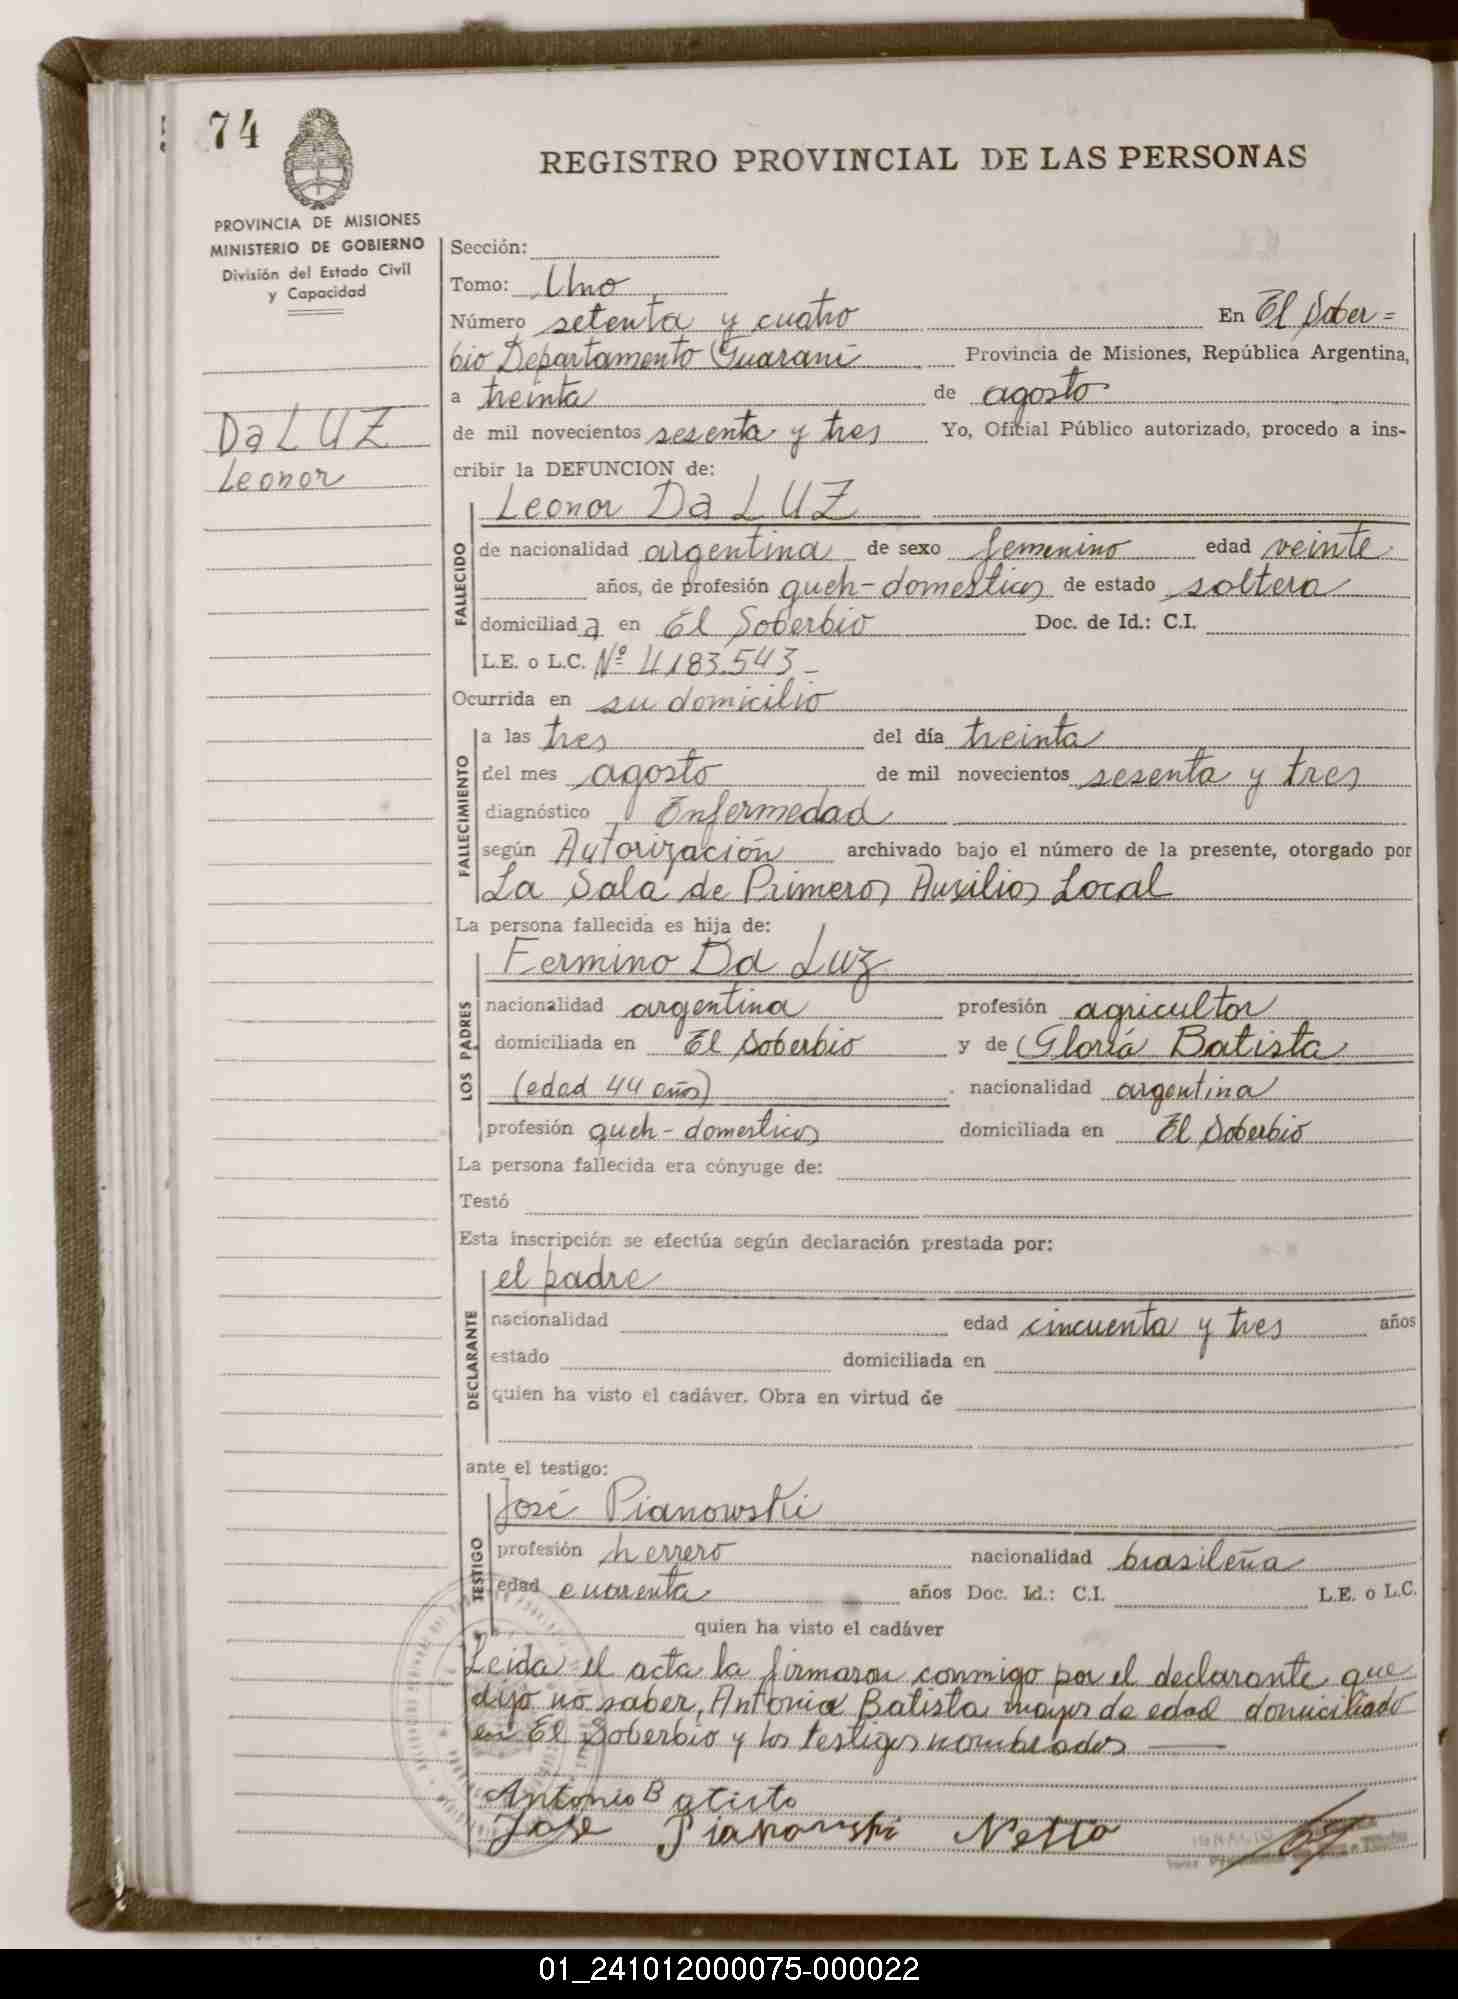 74
REGISTRO PROVINCIAL DE LAS PERSONAS
PROVINCIA DE MISIONES
MINISTERIO DE GOBIERNO
División del Estado Civil
y Capacidad
Da LUZ
Leonor
Sección:
Tomo: Uno
Número setenta y cuatro En El Sober=
bio Departamento Guaraní Provincia de Misiones, República Argentina,
a treinta de agosto
de mil novecientos sesenta y tres Yo, Oficial Público autorizado, procedo a ins-
cribir la DEFUNCION de:
Leonor Da LUZ
FALLECIDO
de nacionalidad argentina de sexo femenino edad veinte
años, de profesión queh-domesticos de estado soltera
domiciliada en El Soberbio Doc. de Id.: C.I.
L.E. o L.C. Nº 4183.543-
Ocurrida en su domicilio
FALLECIMIENTO
a las tres del día treinta
del mes agosto de mil novecientos sesenta y tres
diagnóstico Enfermedad
según Autorización archivado bajo el número de la presente, otorgado por
La Sala de Primeros Auxilios Local
La persona fallecida es hija de:
Fermino Da Luz
LOS PADRES
nacionalidad argentina profesión agricultor
domiciliada en El Soberbio y de Gloria Batista
(edad 44 años) nacionalidad argentina
profesión queh-domesticos domiciliada en El Soberbio
La persona fallecida era cónyuge de:
Testó
Esta inscripción se efectúa según declaración prestada por:
el padre
DECLARANTE
nacionalidad edad cincuenta y tres años
estado domiciliada en
quien ha visto el cadáver. Obra en virtud de
ante el testigo:
José Pianowski
TESTIGO
profesión herrero nacionalidad brasileña
edad cuarenta años Doc. Id.: C.I. L.E. o L.C.
quien ha visto el cadáver
Leida el acta la firmaron conmigo por el declarante que
dijo no saber, Antonio Batista mayor de edad domiciliado
en El Soberbio y los testigos nombrados
Antonio Batista
José Pianowski Netto
01_241012000075-000022